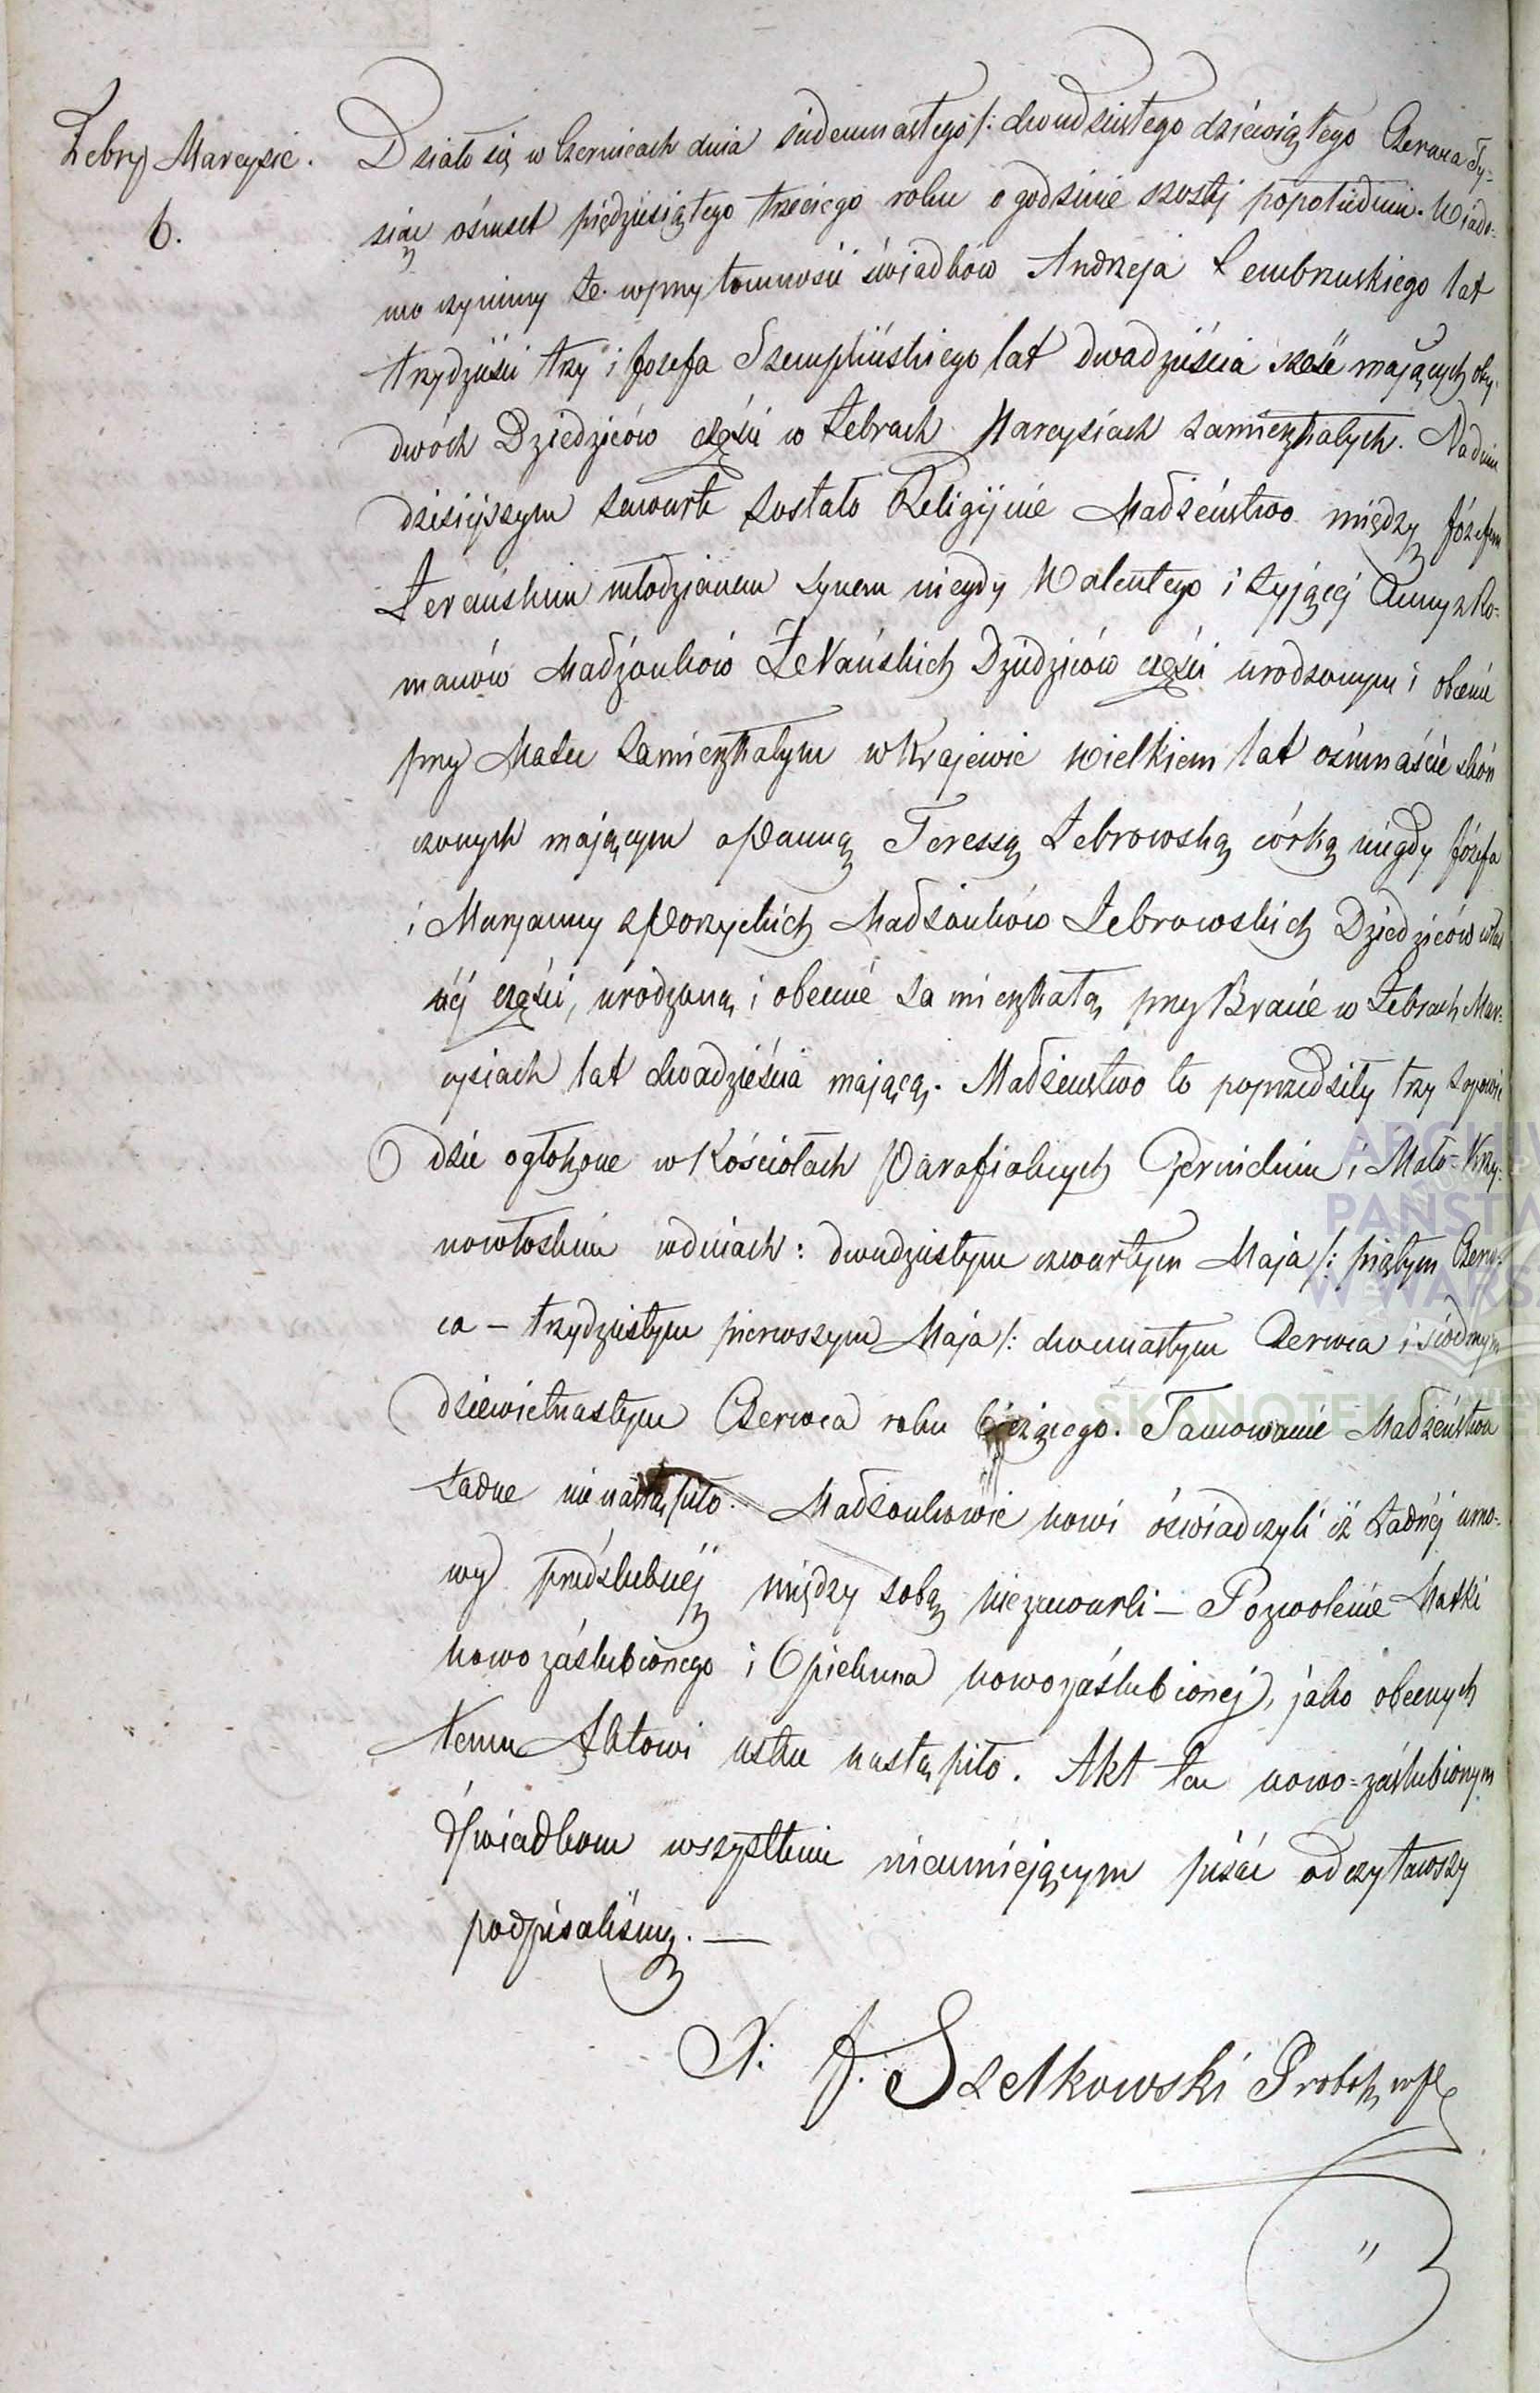 Żebry Marcysie.
6.
Działo się w Czernicach dnia siedemnastego /: dwudziestego dziewiątego Czerwca Ty-
siąc ośmset piędziesiątego trzeciego roku o godzinie szostej popołudniu. Wiado-
mo czynimy że w przytomności świadków Andrzeja Zembrzuskiego lat
trzydzieści trzy i Jozefa Szempлińskiego lat dwadzieścia sześć mających oby-
dwóch Dziedziców części w Żebrach Marcysiach zamieszkałych. Na dniu
dzisiejszym zawarte zostało Religijnie Madżeństwo między Józefem
Żerańskim młodzianem synem niegdy Walentego i żyjącej Anny z Ro-
manów Madżonków Żerańskich Dziedziców części urodzonym i obecnie
przy Matce zamieszkałym w Krajewie Wielkiem lat ośmnaście skoń
czonych mającym a Panną Teressą Żebrowską córką niegdy Józefa
i Maryanny z Porzyckich Madżonków Żebrowskich Dziedziców włas
néj części, urodzoną i obecnie zamieszkałą przy Bracie w Żebrach Mar-
cysiach lat dwadzieścia mającą. Madżeństwo to poprzedziły trzy zapowie
dzie ogłoszone w Kościołach Parafialnych Czernickim i Mało-Krzy-
nowłoskim w dniach: dwudziestym czwartym Maja /: piątym Czerw-
ca – trzydziestym pierwszym Maja /: dwunastym Czerwca i siódmym
dziewietnastym Czerwca roku bieżącego. Tamowanie Madżeństwa
żadne nie nastąpiło. Madżonkowie nowi óświadczyli iż żadnéj umo-
wy przedślubnéj między sobą niezawarli – Pozwolenie Matki
nowozáślubionego i Opiekuna nowozaślubionej, jako obecnych
temu Aktowi ustne nastąpiło. Akt ten nowo-zaślubionym
Świadkom wszystkim nieumiejącym pisać odczytawszy
podpisaliśmy. —
X: J. Szelkowski Probosz mp